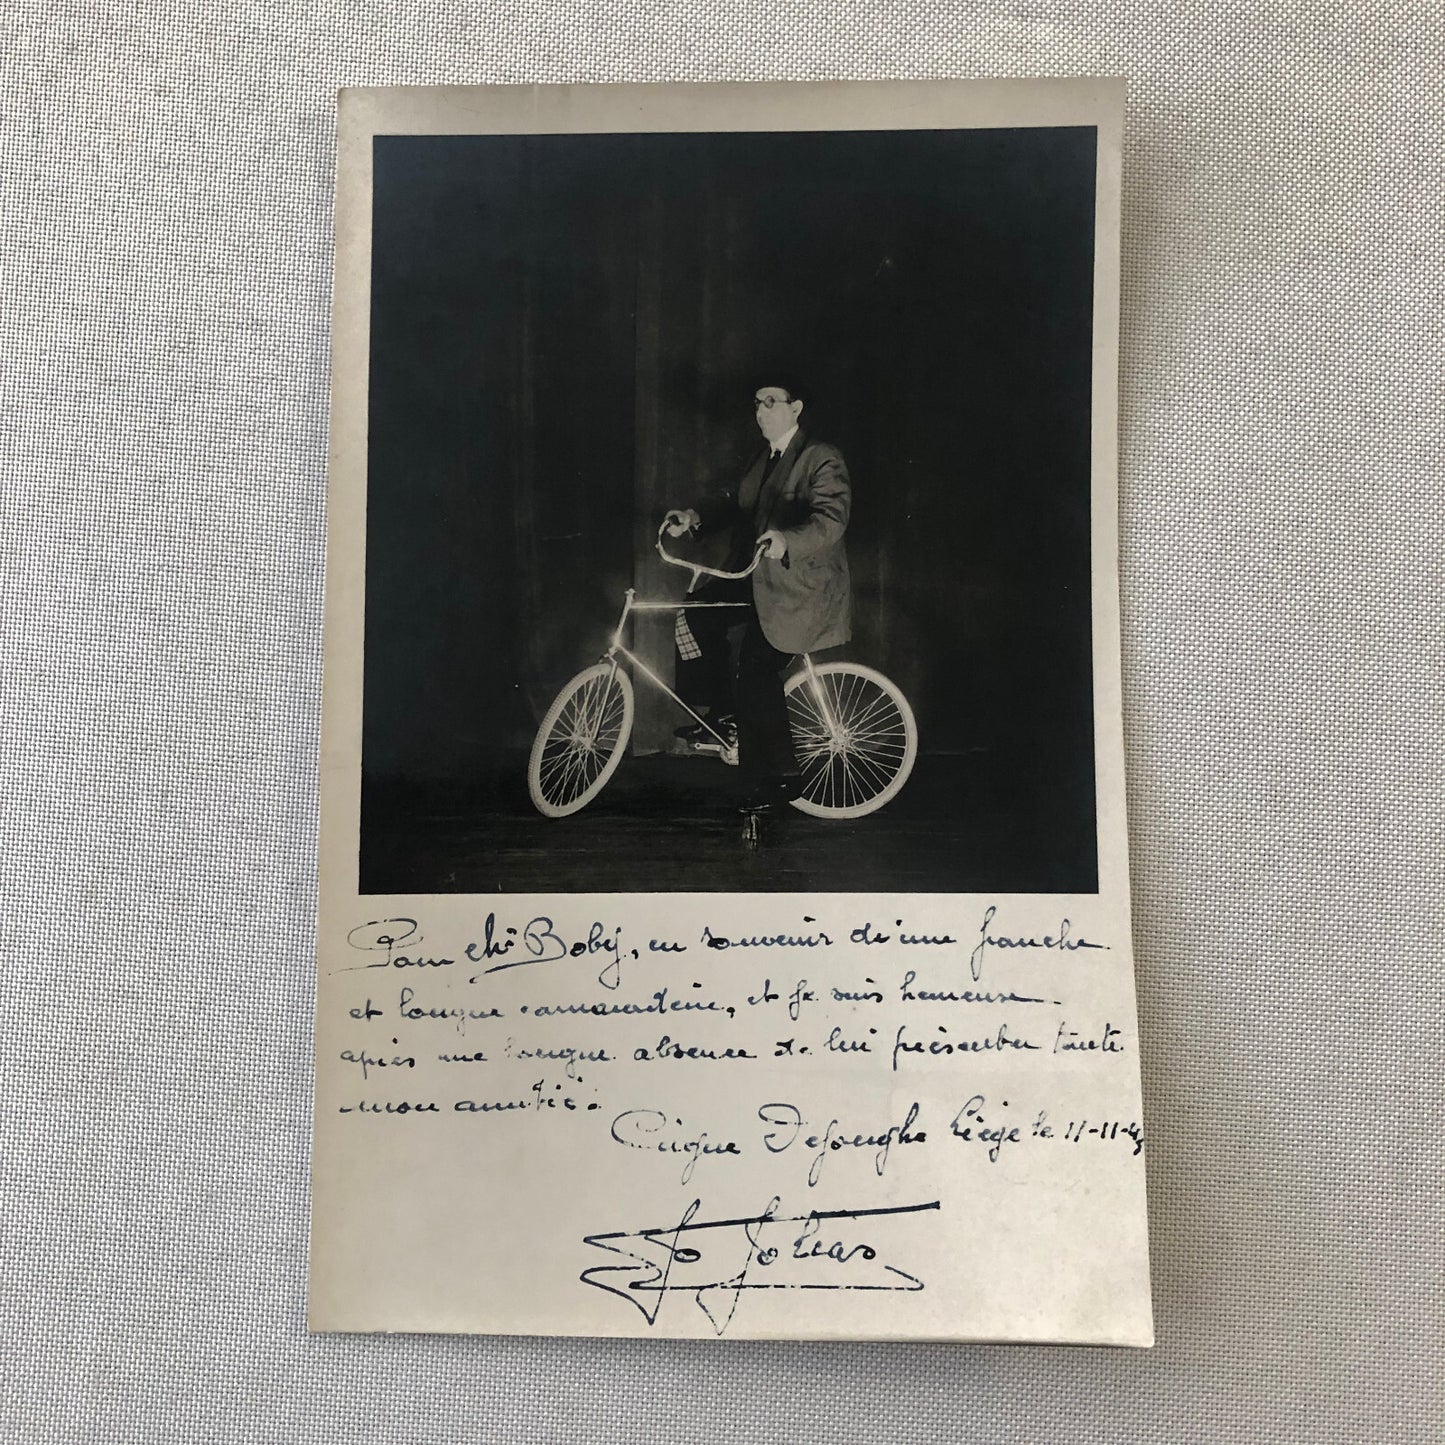 Pour chr Boby, en souvenir d'une franche
et longue camaraderie, et je suis heureuse
après une longue absence de lui présenter toute
mon amitié.
Cirque Dejonghe Liège le 11-11-4
Jo